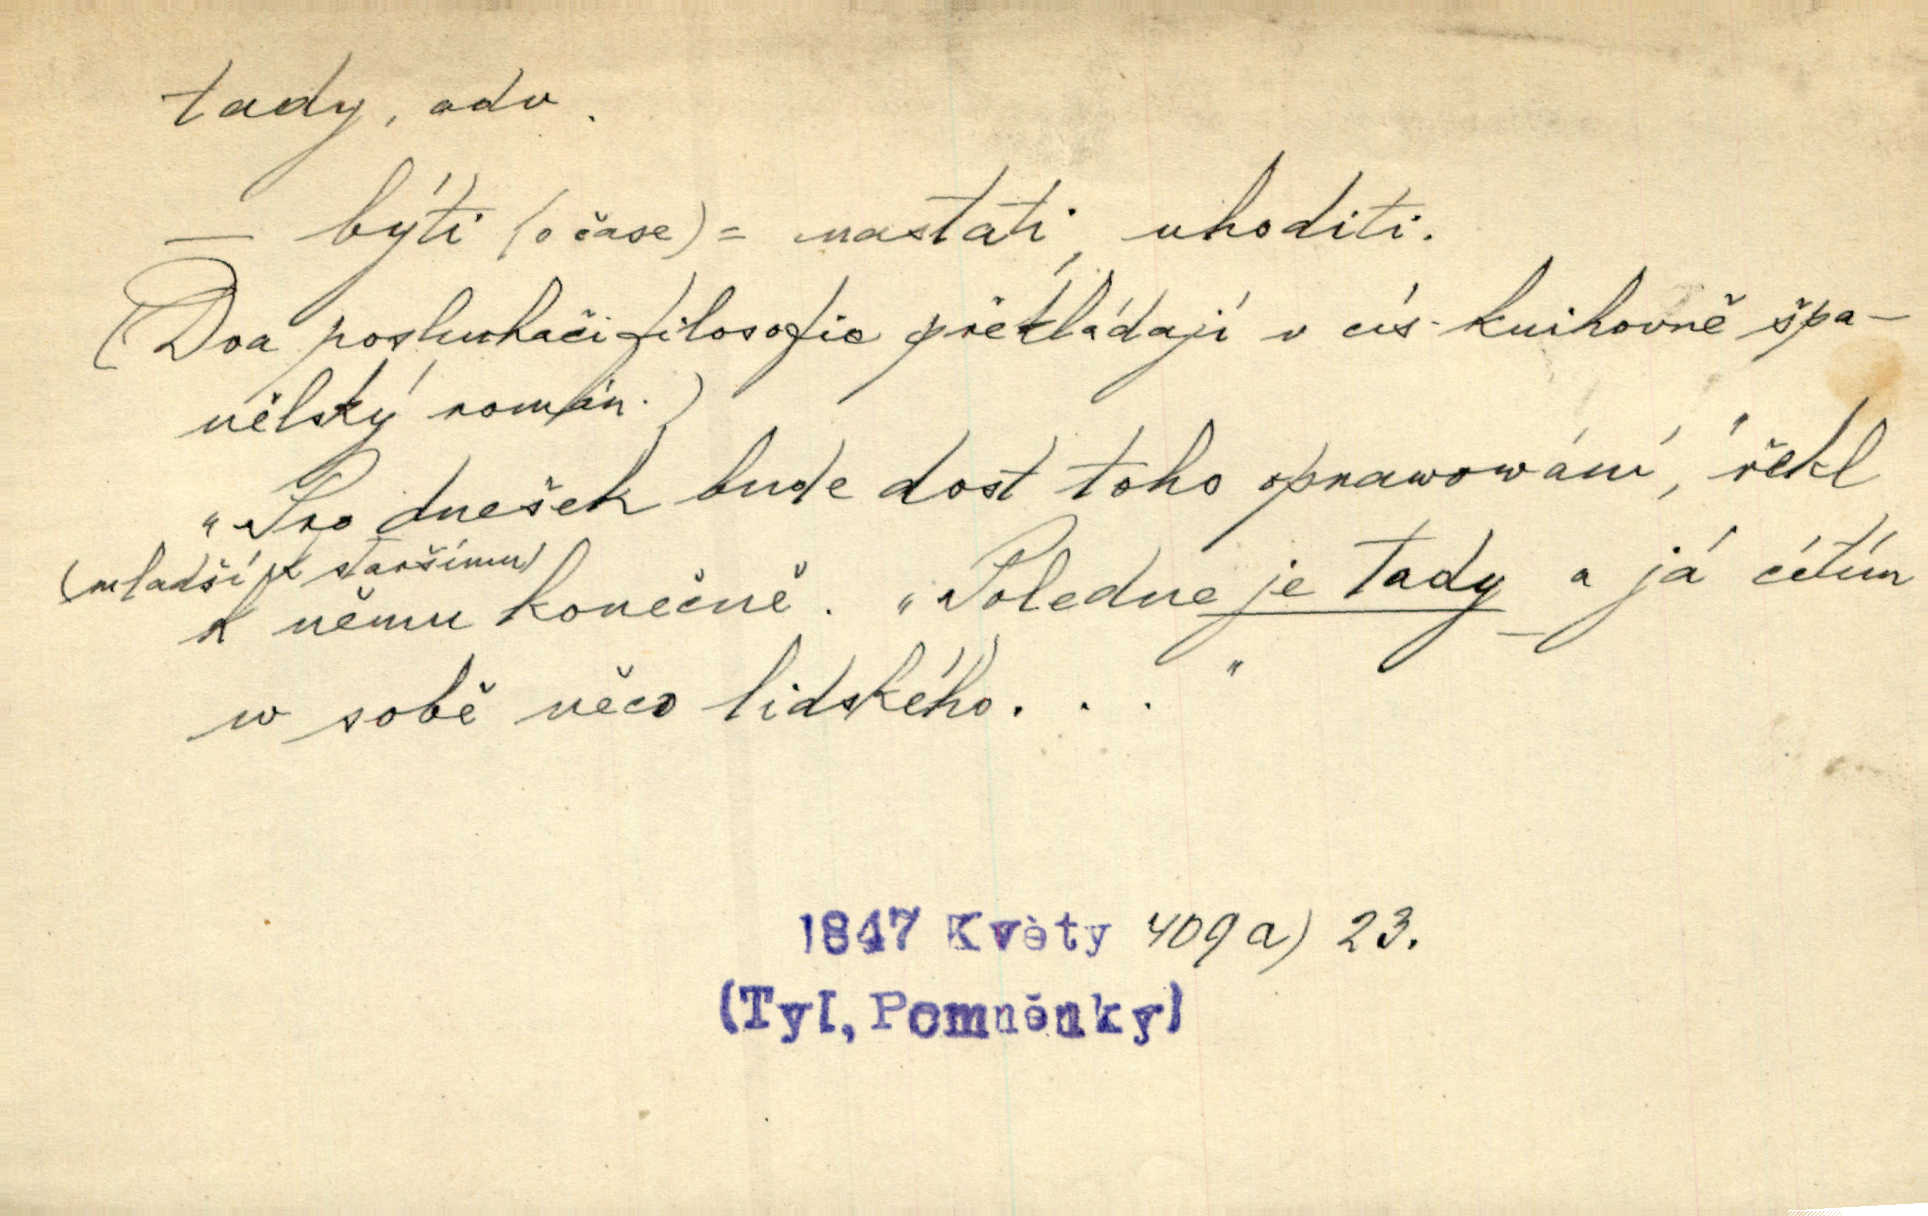 tady, adv.
— býti (o čase) = nastati, uhoditi.
(Dva posluchači filosofie překládají v cís. knihovně špa-
nělský román.)
„Pro dnešek bude dost toho oprawowání," řekl
(mladší k staršímu)
k němu konečně. „Poledne je tady a já cítím
w sobě něco lidského. . . "
1847 Květy 409 a) 23.
(Tyl, Pomněnky)